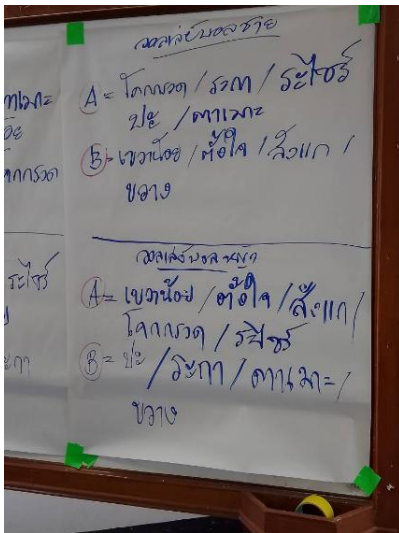 วอลเลย์บอลชาย
A = โคกกรวด / ระกา / ระไซร์
ปะ / ตาเมาะ
B = เขวาน้อย / ตั้งใจ / สังแก /
ขวาง
วอลเลย์บอลหญิง
A = เขวาน้อย / ตั้งใจ / สังแก /
โคกกรวด / ระไซร์
B = ปะ / ระกา / ตาเมาะ /
ขวาง
ตาเมาะ
น้อย
โคกกรวด
ระไซร์
ระกา